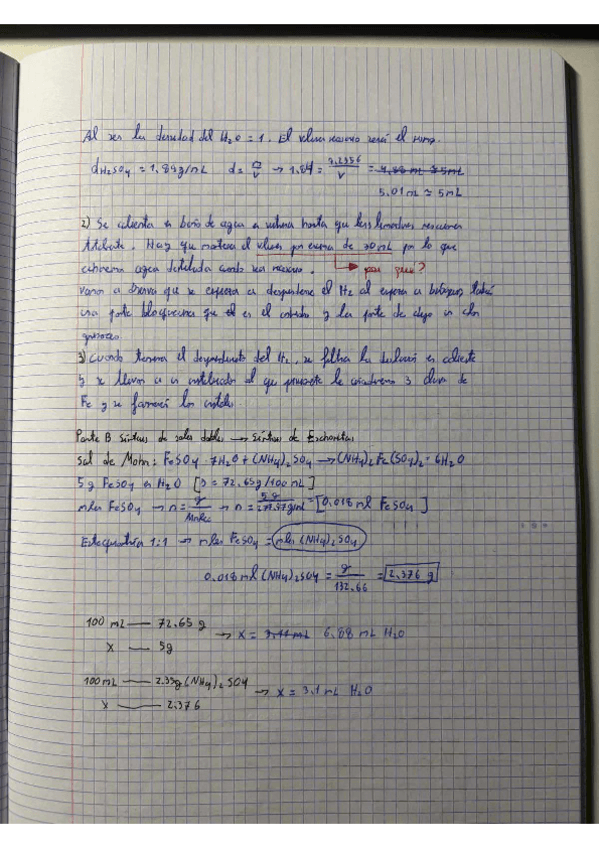 Al ser la densidad del H2O = 1. El volumen necesario será el mismo.
dH2SO4 = 1,84g/mL d = m/V → 1,84 = 9,2356/V = 4,88 mL ≈ 5mL
5,01 mL ≈ 5mL
2) Se calienta en baño de agua en vitrina hasta que las limaduras reaccionen
totalmente. Hay que mantener el volumen por encima de 30 mL por lo que
echaremos agua destilada cuando sea necesario. → por que?
vamos a observar que se empieza a desprender el H2 al empezar a
una parte blanquecina que es el y la parte de abajo un color
3) Cuando termina el desprendimiento del H2, se filtra la disolución en caliente
y se lleva a un cristalizador al que previamente le añadiremos 3 clavos de
Fe y se formarán los cristales.
Parte B Síntesis de sales dobles → Síntesis de
Sal de Mohr: FeSO4 · 7H2O + (NH4)2SO4 → (NH4)2Fe(SO4)2 · 6H2O
5g FeSO4 en H2O [S = 72,65g/100 mL]
moles FeSO4 → n = g/Molec → n = 5g/277,97g/mL = [0,018 mol FeSO4]
Estequiometría 1:1 → moles FeSO4 = moles (NH4)2SO4
0,018 mol (NH4)2SO4 = g/132,66 = 2,376 g
100 mL — 72,65 g
→ x = 7,11 mL 6,88 mL H2O
x — 5g
100mL — 2,33g (NH4)2SO4
→ x = 3,1 mL H2O
x — 2,376